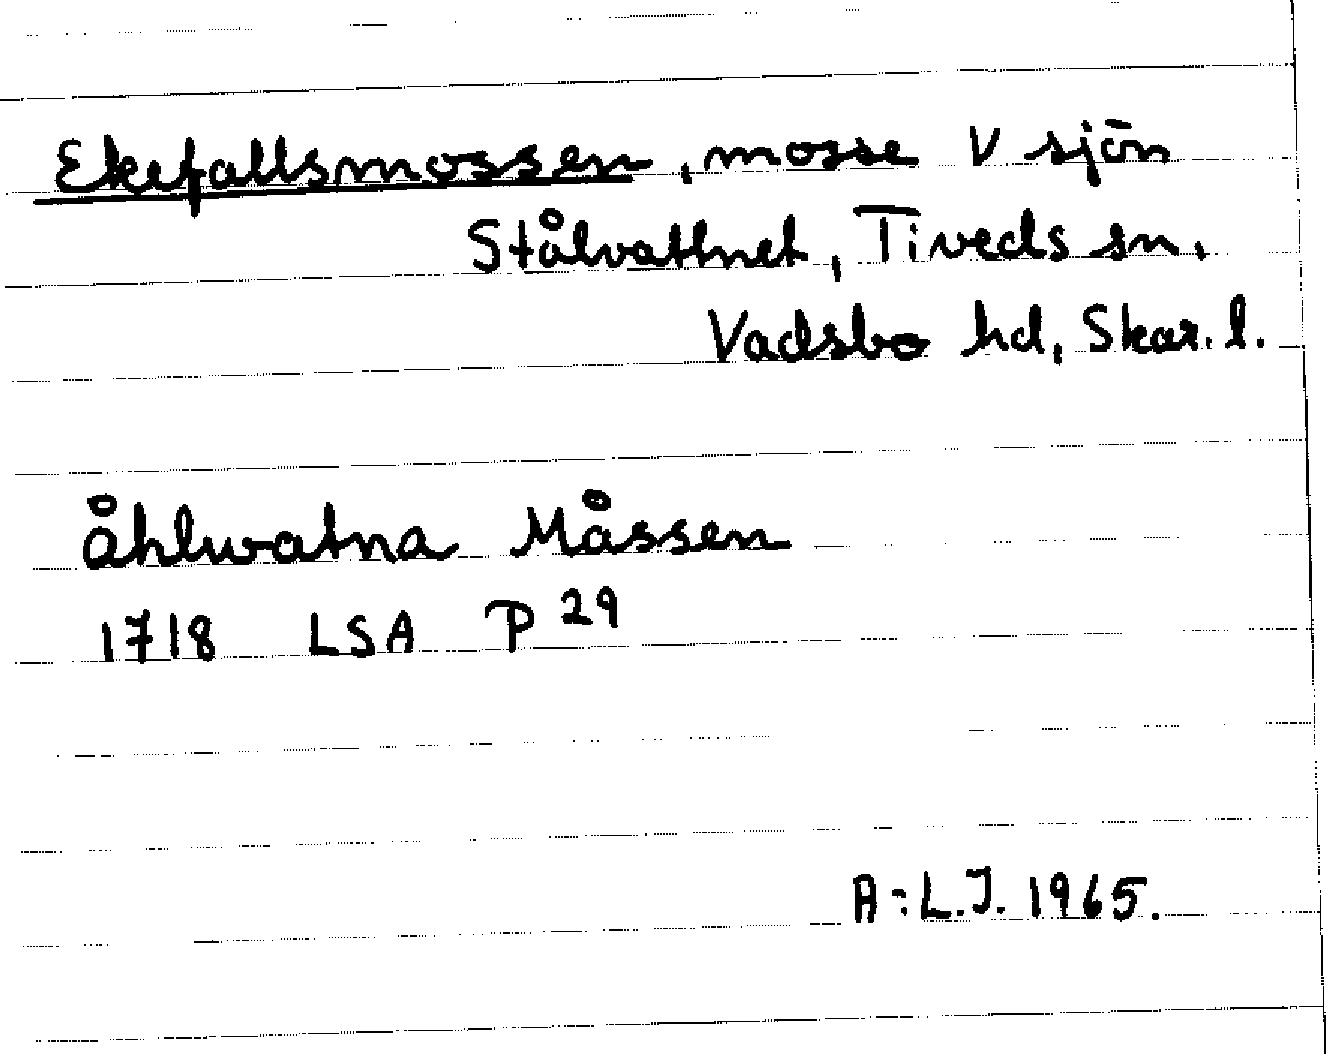 Ekefallsmossen, mosse V sjön
Stålvattnet, Tiveds sn,
Vadsbo hd, Skar. l.
åhlwatna Måssen
1718 LSA P 29
A:L.J. 1965.